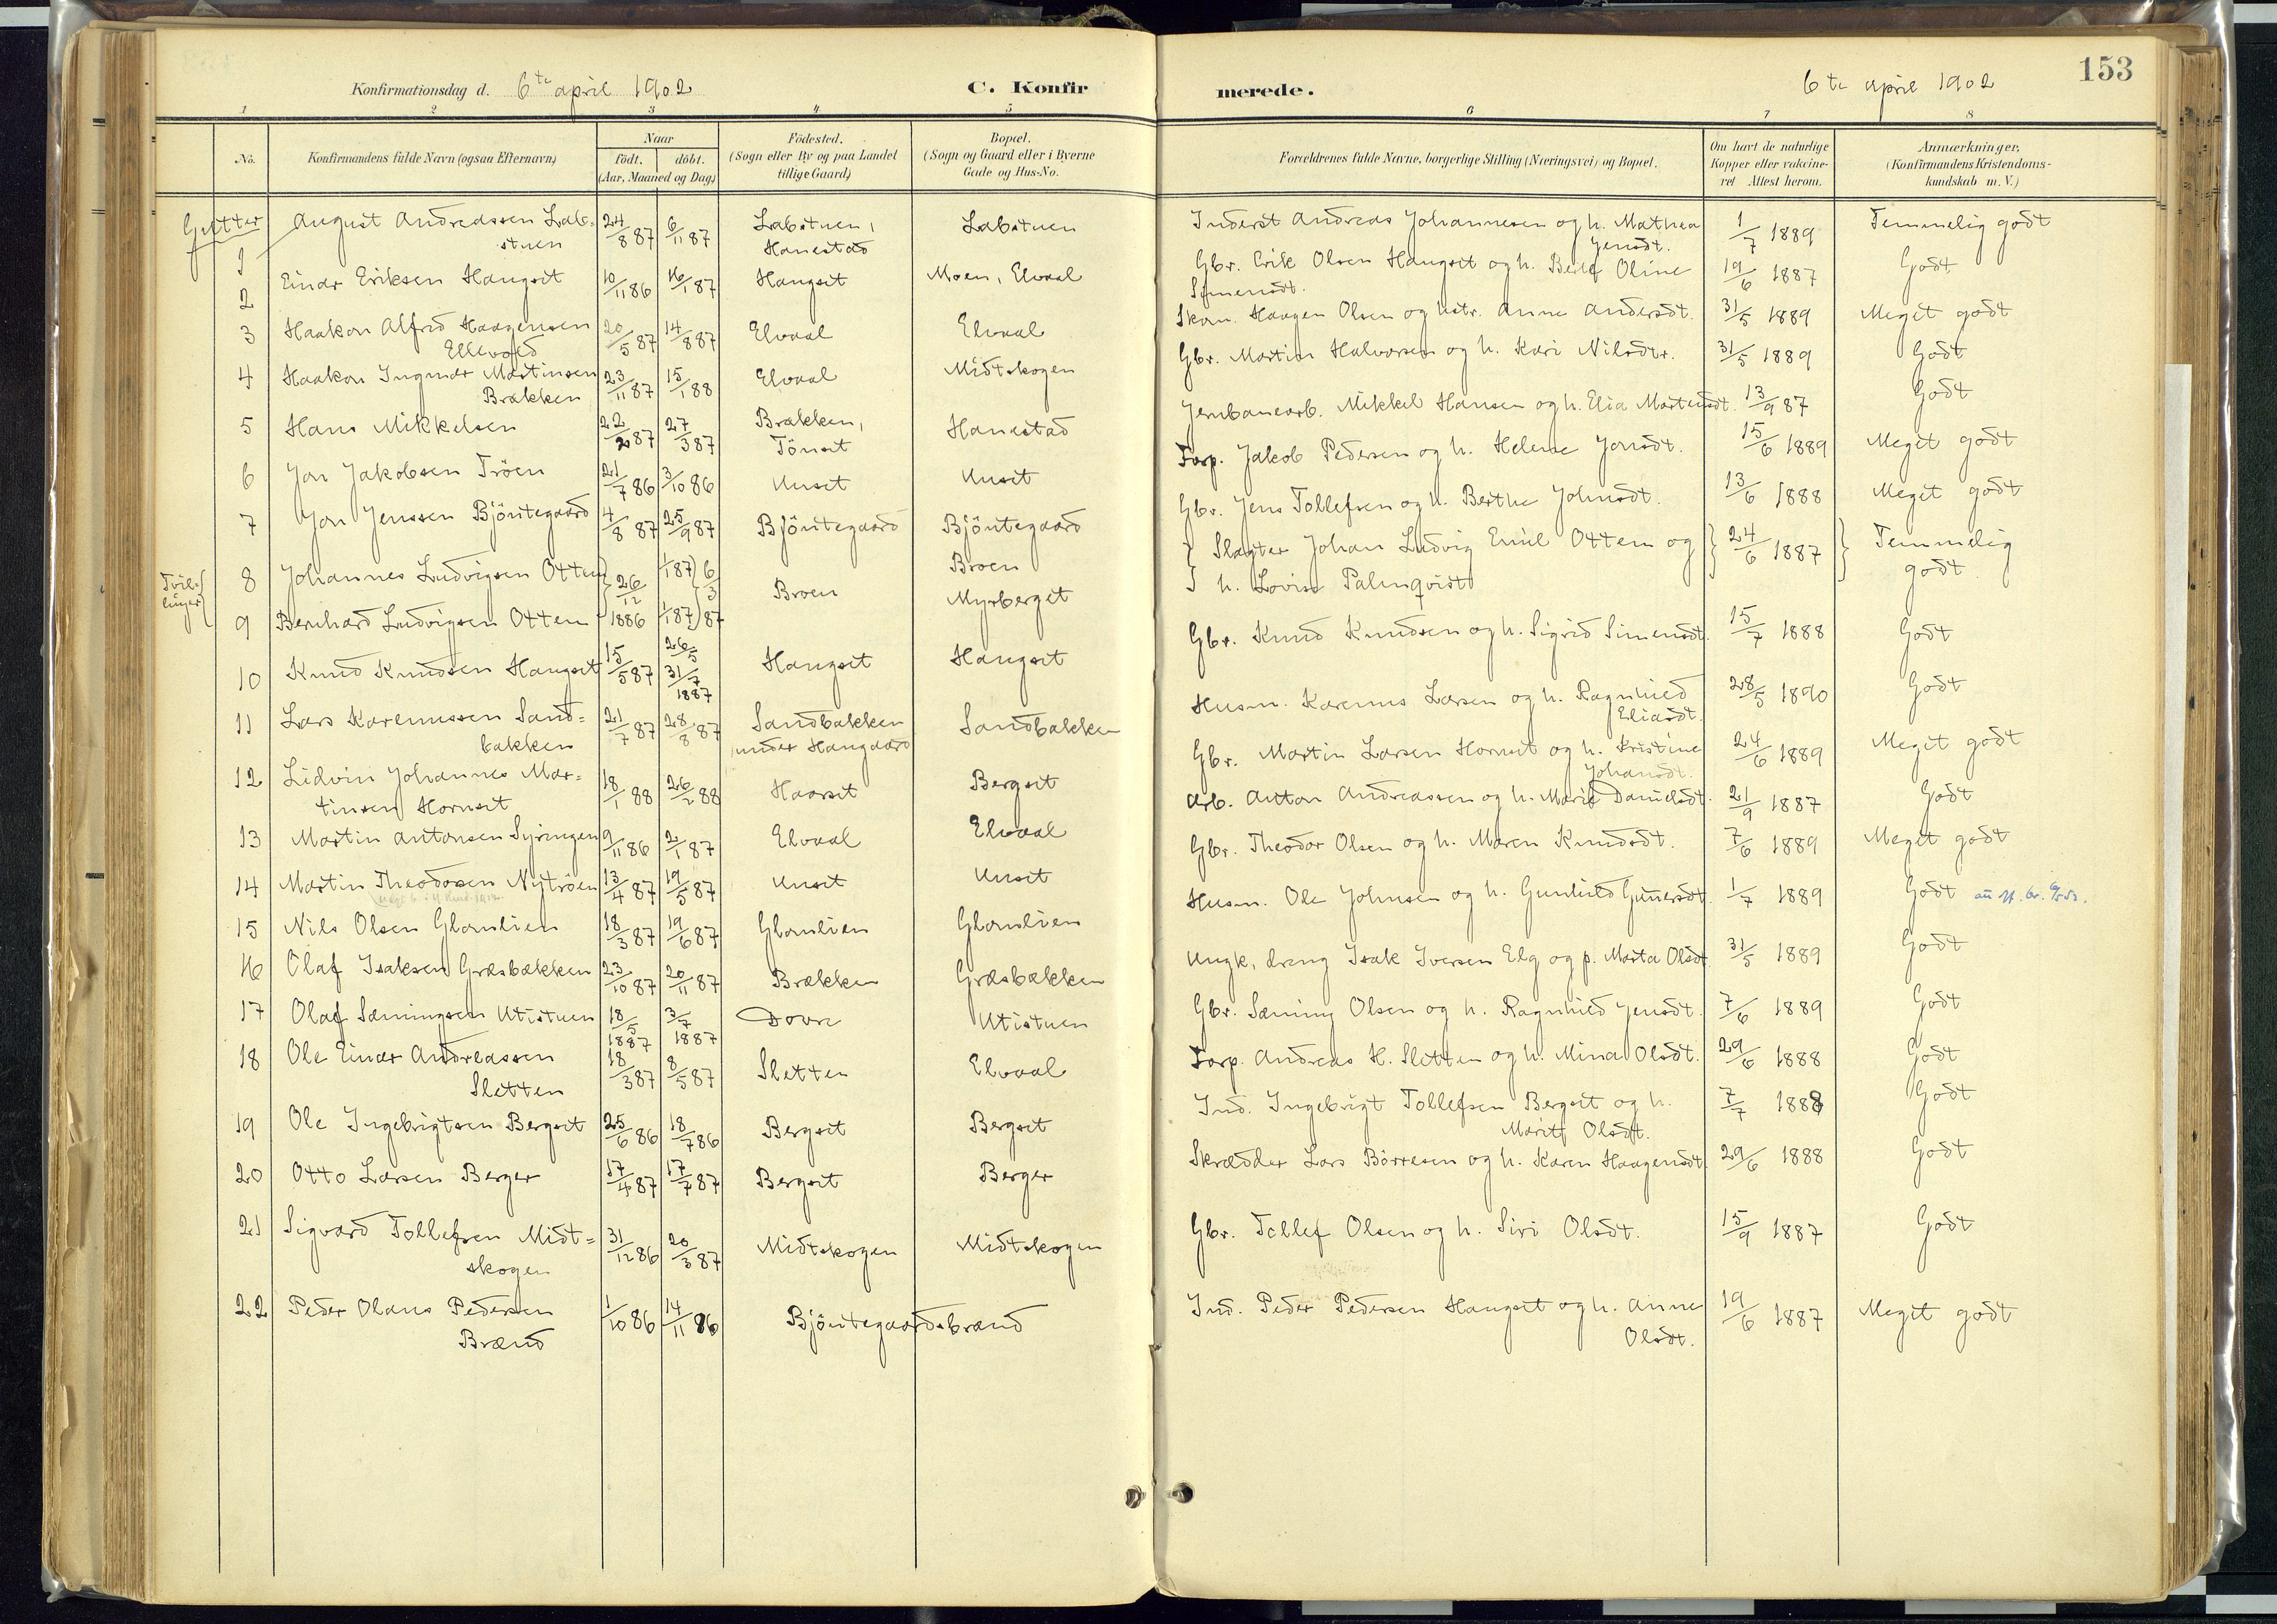 153
Konfirmationsdag d. 6te april 1902 C. Konfirmerede. 6te april 1902
1 2 3 4 5 6 7 8
No. Konfirmandens fulde Navn (ogsaa Efternavn) Naar födt. döbt. (Aar, Maaned og Dag.) Födested. (Sogn eller By og paa Landet tillige Gaard) Bopæl. (Sogn og Gaard eller i Byerne Gade og Hus-No. Forældrenes fulde Navne, borgerlige Stilling (Næringsvei) og Bopæl. Om havt de naturlige Kopper eller vakcineret Attest herom. Anmærkninger. (Konfirmandens Kristendomskundskab m. V.)
Gutter
1 August Andreassen Labstuen 24/8 87 6/11 87 Labstuen, Hanestad Labstuen Inderst Andreas Johannesen og h. Mathea Jensdt. 1/7 1889 Temmelig godt
2 Einar Eriksen Haugset 10/11 86 16/1 87 Haugset Moen, Elvaal Gbr. Erik Olsen Haugset og h. Oline Simensdt. 19/6 1887 Godt
3 Haakon Alfred Haagensen Ellevold 20/5 87 14/8 87 Elvaal Elvaal Skom. Haagen Olsen og hstr. Anne Andersdt. 31/5 1889 Meget godt
4 Haakon Ingmar Martinsen Brækken 23/11 87 15/1 88 Elvaal Midtskogen Gbr. Martin Halvorsen og h. Kari Nilsdtr. 31/5 1889 Godt
5 Hans Mikkelsen 22/2 87 27/3 87 Brækken, Tönset Hanestad Jernbanearb. Mikkel Hansen og h. Elia Mortensdt. 13/9 87 Godt
6 Jon Jakobsen Tröen 21/7 86 3/10 86 Unset Unset Forp. Jakob Pedersen og h. Helene Jonsdt. 15/6 1889 Meget godt
7 Jon Jenssen Bjöntegaard 4/8 87 25/9 87 Bjöntegaard Bjöntegaard Gbr. Jens Tollefsen og h. Berthe Johnsdt. 13/6 1888 Meget godt
Tvillinger
8 Johannes Ludvigsen Otten 26/12 1886 1/1 87 6/3 87 Broen Broen Slagter Johan Ludvig Emil Ottem og h. Lovise Palmqvist 24/6 1887 Temmelig godt
9 Bernhard Ludvigsen Otten 1/1 87 Myrberget
10 Knud Knudsen Haugset 15/5 87 26/5 31/7 1887 Haugset Haugset Gbr. Knud Knudsen og h. Sigrid Simensdt. 15/7 1888 Godt
11 Lars Karenussen Sandbakken 21/7 87 28/8 87 Sandbakken under Haugaard Sandbakken Husm. Karenus Larsen og h. Ragnhild Eliasdt. 28/5 1890 Godt
12 Lidvin Johannes Martinsen Hornset 18/1 88 26/2 88 Haarset Bergset Gbr. Martin Larsen Hornset og h. Kristine Johansdt. 24/6 1889 Meget godt
13 Martin Antonsen Syringen 9/11 86 2/1 87 Elvaal Elvaal Arb. Anton Andreassen og h. Marie Danielsdt. 21/9 1887 Godt
14 Martin Theodorsen Nytröen 13/4 87 19/5 87 Unset Unset Gbr. Theodor Olsen og h. Maren Knudsdt. 7/6 1889 Meget godt
15 Nils Olsen Glomlien 18/3 87 19/6 87 Glomlien Glomlien Husm. Ole Johnsen og h. Gunhild Gunersdt. 1/7 1889 Godt
16 Olaf Isaksen Græsbækken 23/10 87 20/11 87 Brækken Græsbækken Ungk, dreng Isak Iversen Elg og p. Marta Olsdt 31/5 1889 Godt
17 Olaf Sæmingsen Utistuen 18/5 1887 3/7 1887 Dovre Utistuen Gbr. Sæming Olsen og h. Ragnhild Jensdt. 7/6 1889 Godt
18 Ole Einar Andreassen Sletten 18/3 87 8/5 87 Sletten Elvaal Forp. Andreas H. Sletten og h. Mina Olsdt. 29/6 1888 Godt
19 Ole Ingebrigtsen Bergset 25/6 86 18/7 86 Bergset Bergset Ind. Ingebrigt Tollefsen Bergset og h. Marit Olsdt. 7/7 1888 Godt
20 Otto Larsen Berger 17/4 87 17/7 87 Bergset Berger Skrædder Lars Börresen og h. Karen Haagensdt. 29/6 1888 Godt
21 Sigvard Tollefsen Midtskogen 31/12 86 20/3 87 Midtskogen Midtskogen Gbr. Tollef Olsen og h. Siri Olsdt. 15/9 1887 Godt
22 Peder Olaus Pedersen Brænd 1/10 86 14/11 86 Bjöntegaardsbrænd Ind. Peder Pedersen Haugset og h. Anne Olsdt. 19/6 1887 Meget godt